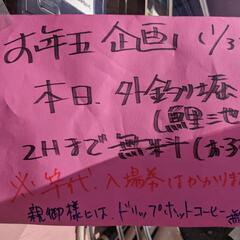 お年玉企画! 1/3
本日、外釣り堀
(鯉三池
2Hまで無料(お
※竿代、入場券はかかりま
親御様には、ドリップホットコーヒー無